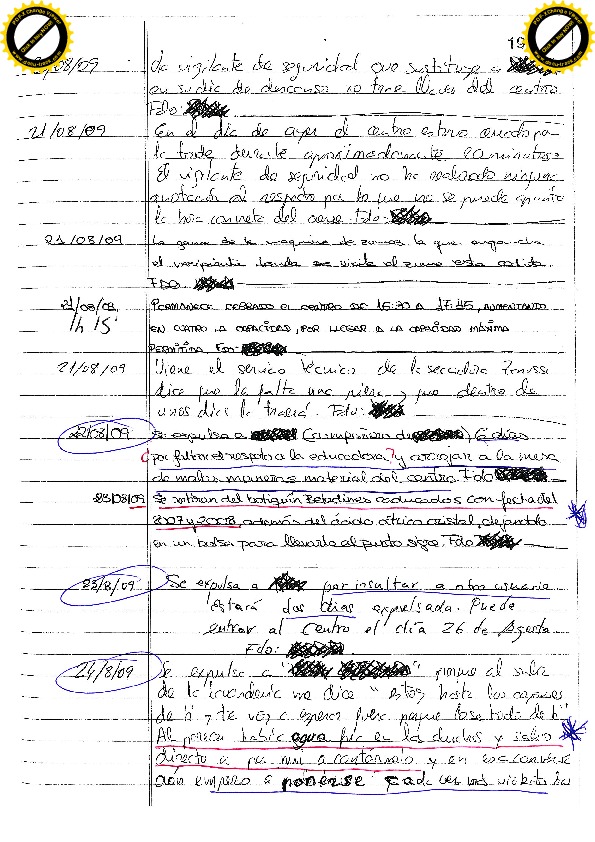 19
/08/09 La vigilante de seguridad que sustituye a
en su dia de descanso no tiene llaves del centro
Fdo:
21/08/09 En el día de ayer el centro estuvo cerrado por
la tarde durante aproximadamente minutos
El vigilante de seguridad no ha realizado ninguna
anotación al respecto por lo que no se puede
la hora concreta del cierre Fdo:
21/08/09 La goma de la maquina de zumos la que engancha
el recipiente donde se el zumo esta salida.
FDO
21/08/09 PERMANECE CERRADO EL CENTRO DE 16:30 A 17:45, AUMENTANDO
1h 15'
EN CUATRO LA CAPACIDAD, POR LLEGAR A LA CAPACIDAD MÁXIMA
PERMITIDA. Fdo:
21/08/09 Viene el servicio técnico de la secadora
dice que la falta una pieza y que dentro de
unos dias la traerá. Fdo:
22/08/09 Se expulsa a (compañera de ) 6 días
¿por faltar el respeto a la educadora? y arrojar a la mesa
de malas maneras material del centro. Fdo
23/08/09 Se retiran del botiquín Betadines caducados con fecha del
2007 y 2008, además del ácido cítrico cristal, dejándolo
en un bolsa para llevarlo al punto sigre. Fdo
23/8/09 Se expulsa a por insultar a otro usuario
Estará dos días expulsada. Puede
entrar al Centro el día 26 de Agosto
Fdo:
24/8/09 Se expulsa a " " porque al salir
de la me dice "estoy hasta los cojones
de ti y te voy a esperar fuera porque
Al parecer había agua fría en las duchas y salió
directo a por mi a y en ese
aún empezo a ponerse cada vez más violento